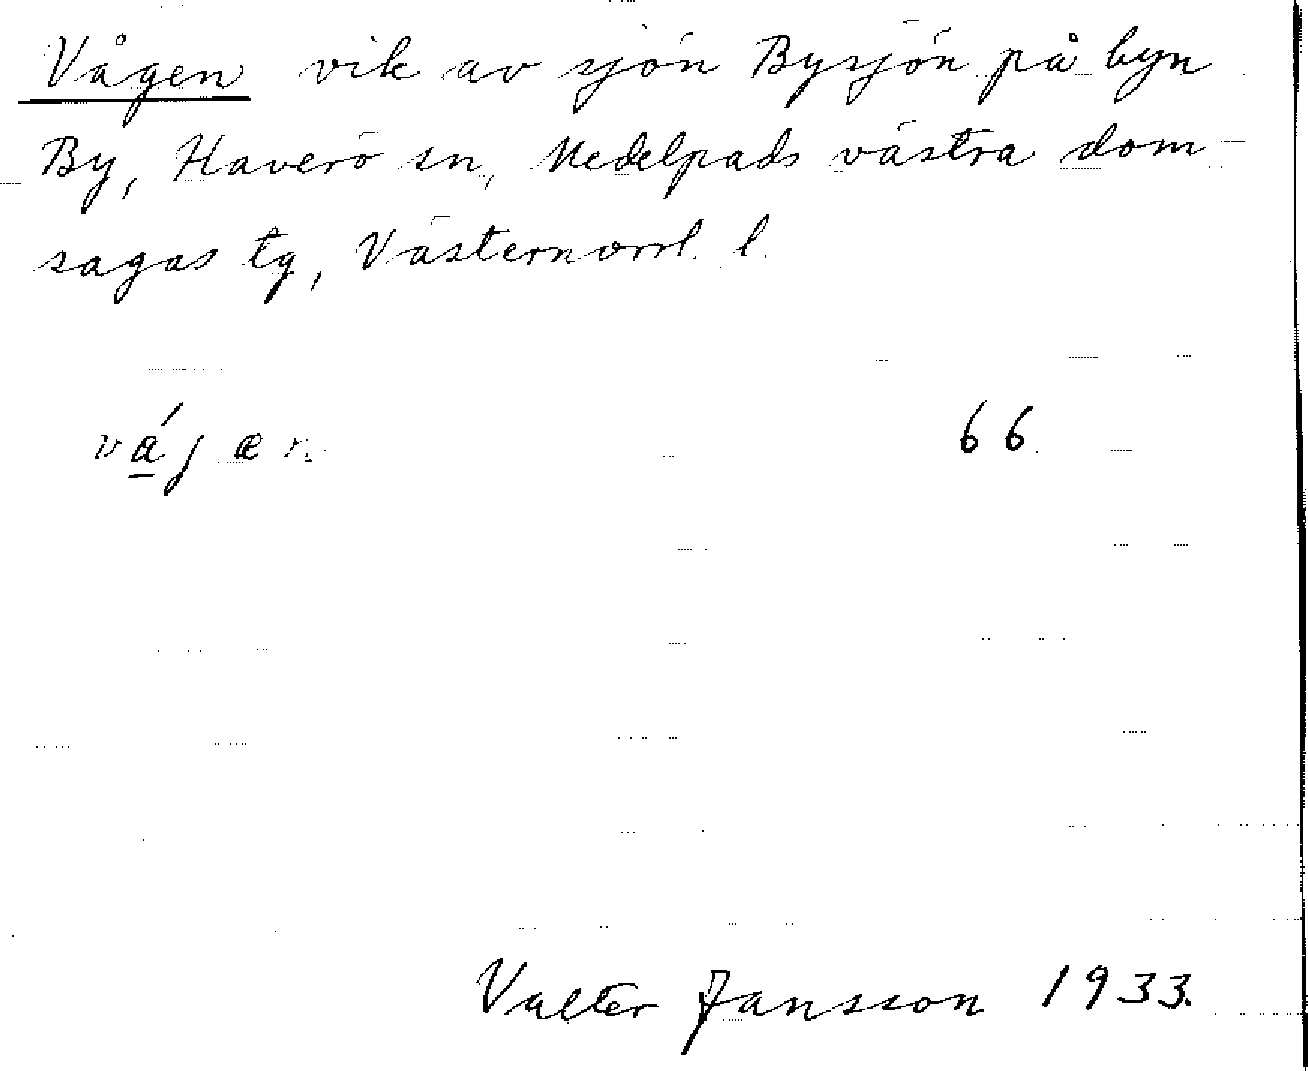 Vågen vik av sjön Bysjön på byn
By, Haverö sn, Medelpads västra dom-
sagas tg, Västernorrl. l.
66
Valter Jansson 1933.